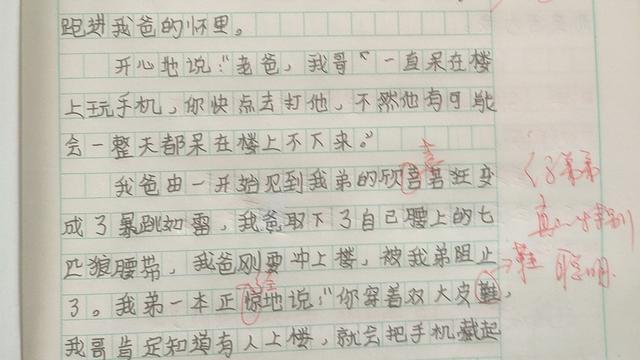 跑进我爸的怀里。
开心地说:“老爸,我哥“一直呆在楼
上玩手机,你快点去打他,不然他有可能
会一整天都呆在楼上不下来。”
喜
我爸由一开始见到我弟的欣喜若狂变
成了暴跳如雷,我爸取下了自己腰上的七
匹狼腰带,我爸刚要冲上楼,被我弟阻止
了。我弟一本正惊地说:“你穿着双大皮鞋,
经
鞋
我哥肯定知道有人上楼,就会把手机藏起
弟弟
真
聪明